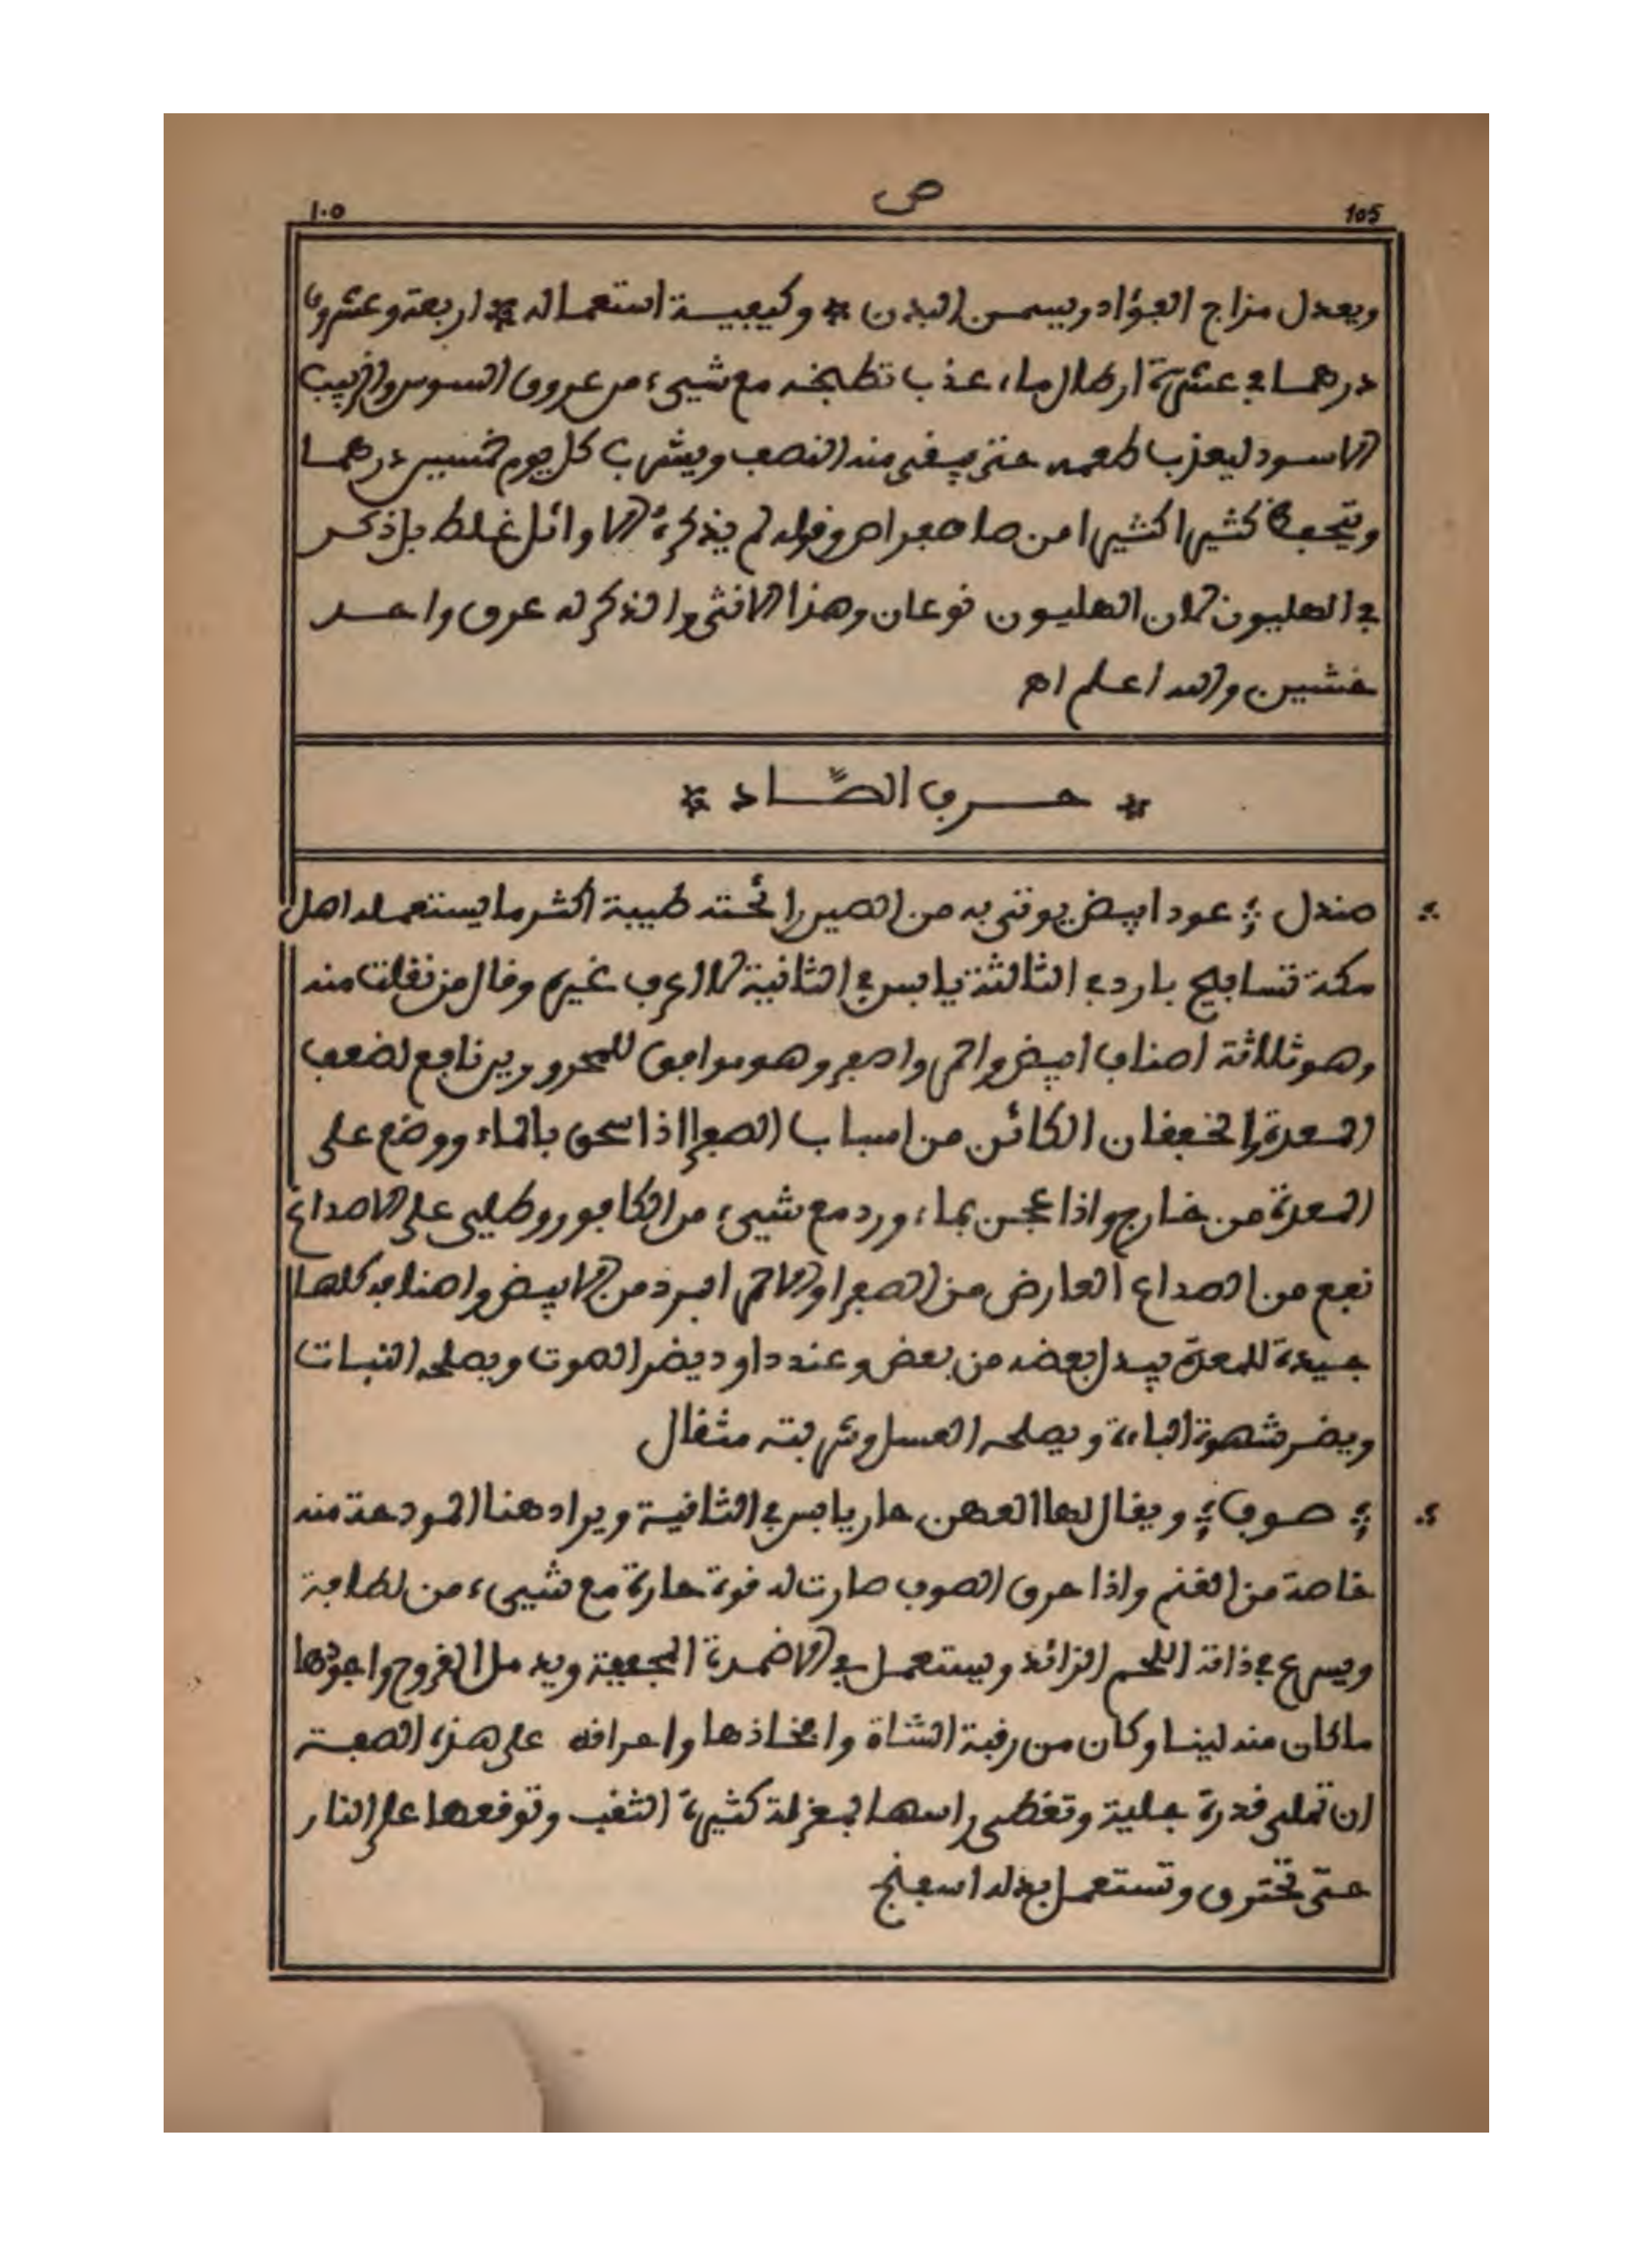 ١٠٥ ص 105
ويعدل مزاج الفؤاد ويسمن البدن * وكيفية استعماله * اربعة وعشرون
درهما في عشرة ارطال ماء عذب تطبخه مع شيىء من عروق السوس والزبيب
الاسود ليعذب طعمه حتى يبقى منه النصف ويشرب كل يوم خمسين درهما
كثيرا كثيرا من اه وقوله لم يذكره الاوائل غلط بل ذكر
في الهليون لان الهليون نوعان وهذا الانثى والذكر له عرق واحد
خشين والله اعلم اه
* حرف الصّاد *
صندل ؛ عود ابيض يوتى به من الصين رائحته طيبة اكثر ما يستعمله اهل
مكة تسابيح بارد في الثالثة يابس في الثانية لا اعرف غيره وقال من نقلت منه
وهو ثلاثة اصناف ابيض واحمر واصفر وهو موافق للمحرورين نافع لضعف
المعدة والخفقان الكائن من اسباب الصفرا اذا سحق بالماء ووضع على
المعدة من خارج واذا عجن بماء ورد مع شيىء من الكافور وطلي على الاصداغ
نفع من الصداع العارض من الصفرا والاحمر ابرد من الابيض واصنافه كلها
جيدة للمعدة يبدل بعضه من بعض وعند داود يضر الصوت ويصلحه النبات
ويضر شهوة الباءة ويصلحه العسل وشربته مثقال
؛ صوف ؛ ويقال لها العهن حار يابس في الثانية ويراد هنا المودعة منه
خاصة من الغنم واذا حرق الصوف صارت له قوة حارة مع شيىء من لطافة
ويسرع في ذاتة اللحم الزائد ويستعمل في الاضمدة المجففة ويدمل القروح واجودها
ماكان منه لينا وكان من رقبة الشاة وافخاذها واحراقه على هذه الصفة
ان تملى قدرة جلية وتغطى راسها بمغزلة كثيرة الثقب وتوقعها على النار
حتى تحترق وتستعمل بدله اسفنج